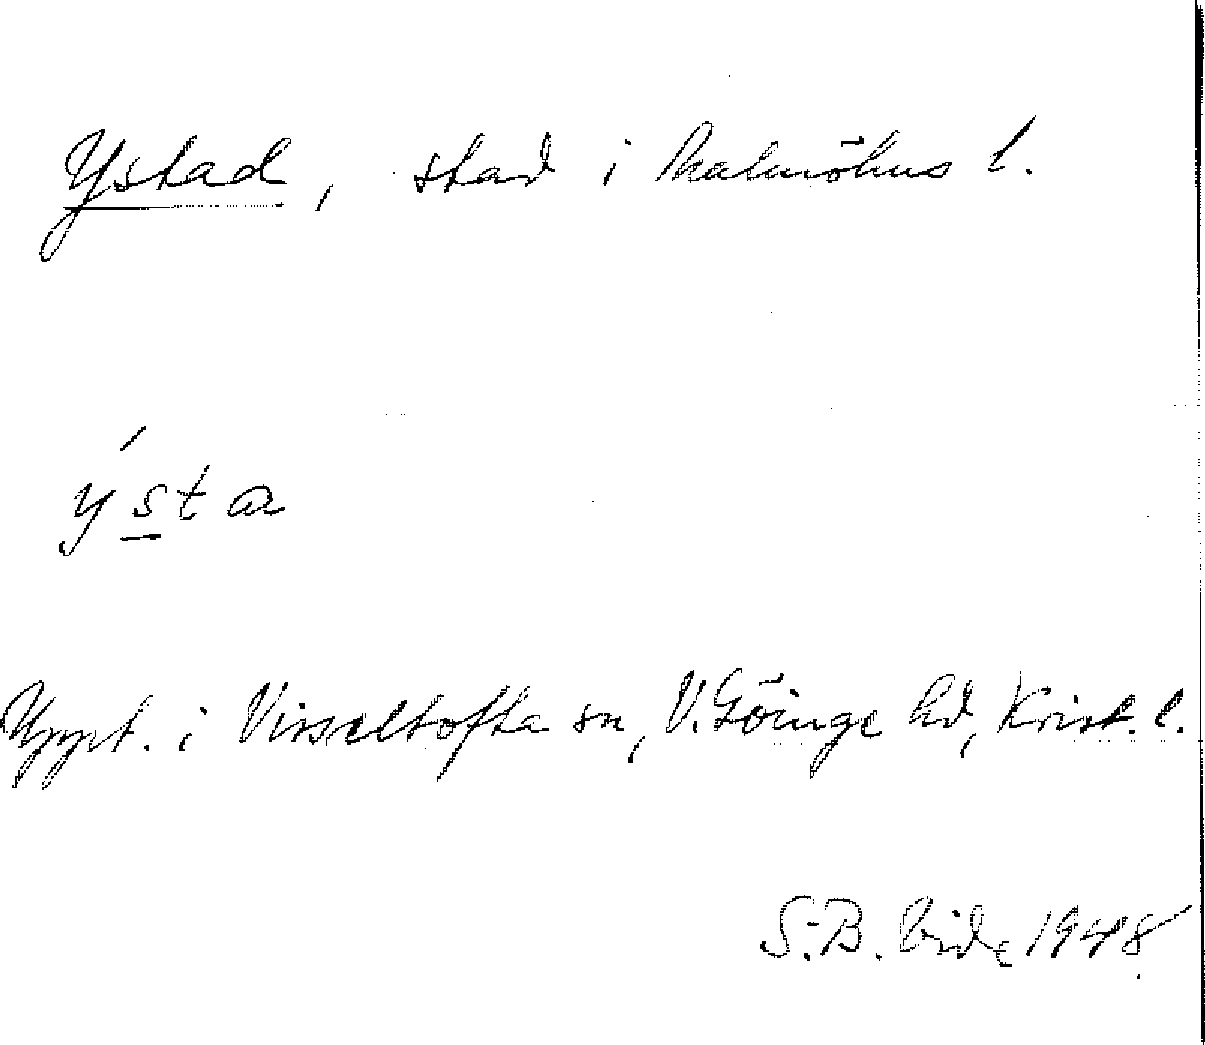 Ystad, stad i Malmöhus l.
ýsta
Uppt. i Visseltofta sn, V. Göinge hd, Krist. l.
S.-B. Vide 1948